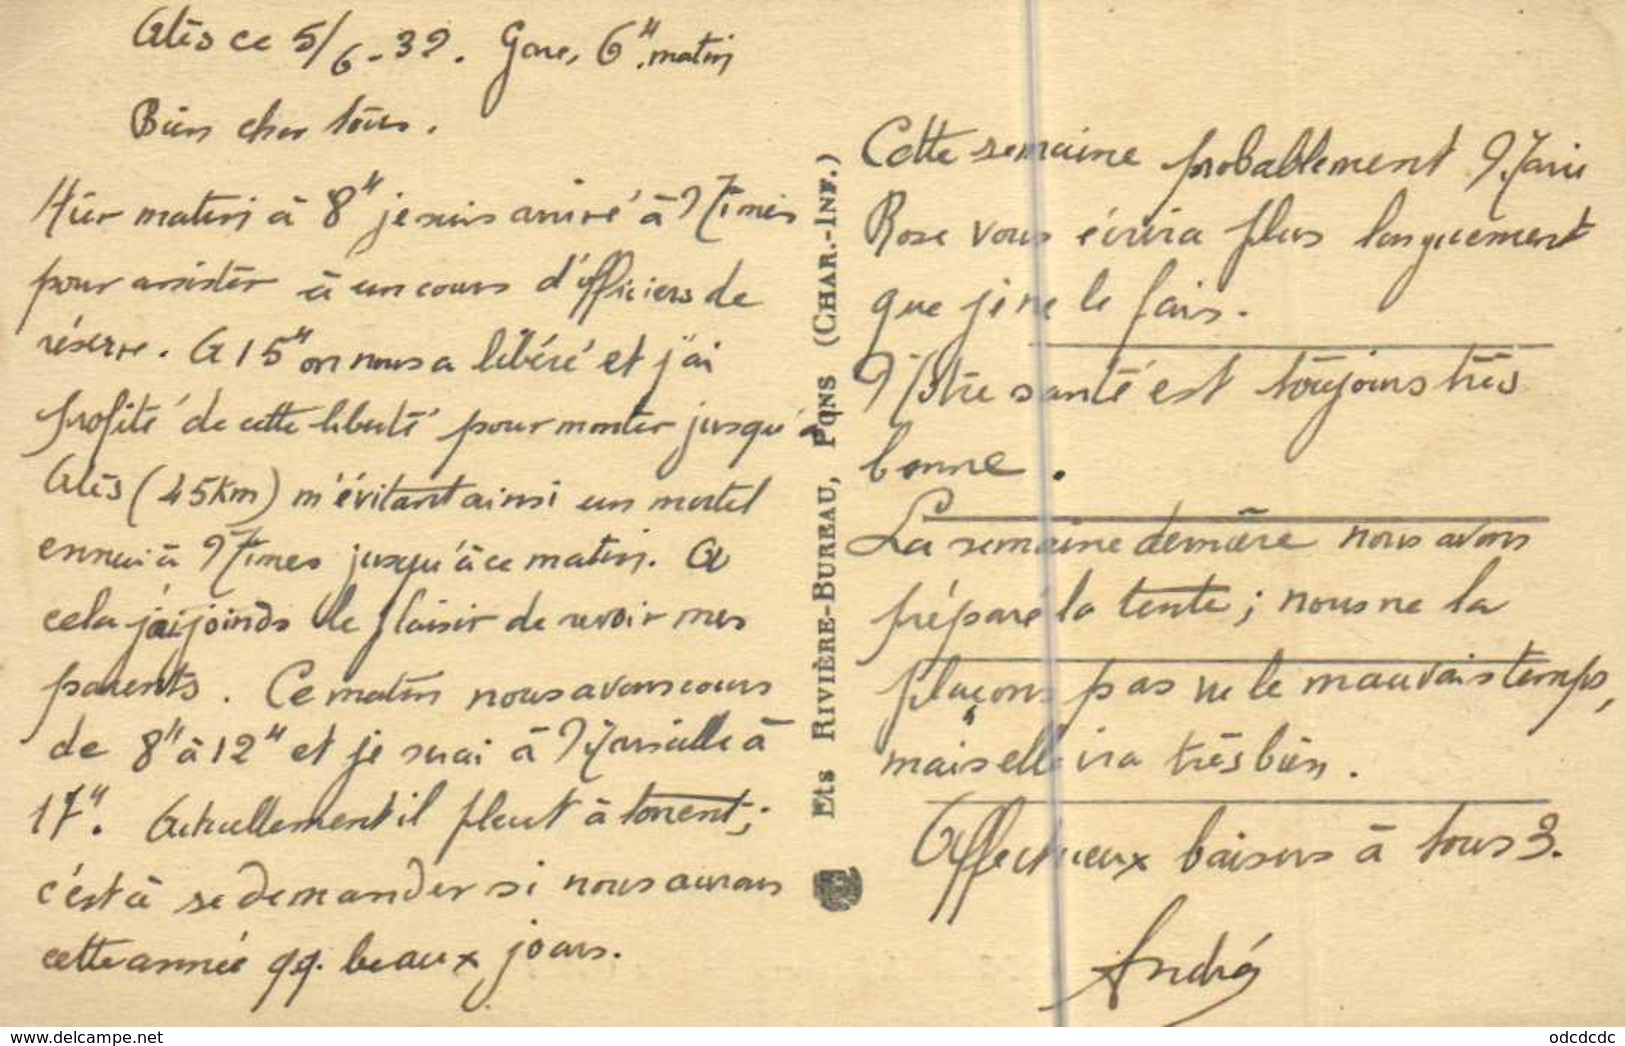 Alès ce 5/6-39. Gare, 6" matin
Bien cher tous.
Hier matin à 8" je suis arrivé à Nîmes
pour assister à un cours d'officiers de
réserve. A 15" on nous a libéré et j'ai
profité de cette liberté pour monter jusqu'à
Alès (45km) m'évitant ainsi un mortel
ennui à Nîmes jusqu'à ce matin. A
cela j'ai joinds le plaisir de revoir mes
parents. Ce matin nous avons cours
de 8" à 12" et je serai à Marseille à
17". Actuellement il pleut à torrent;
c'est à se demander si nous aurons
cette année qq. beaux jours.
Ets RIVIÈRE-BUREAU, PONS (CHAR.-INF.)
Cette semaine probablement Marie
Rose vous écrira plus longuement
que je ne le fais.
Nôtre santé est toujours très
bonne.
La semaine dernière nous avons
préparé la tente; nous ne la
plaçons pas vu le mauvais temps,
mais elle ira très bien.
Affectueux baisers à tous 3.
André
delcampe.net
odcdcdc